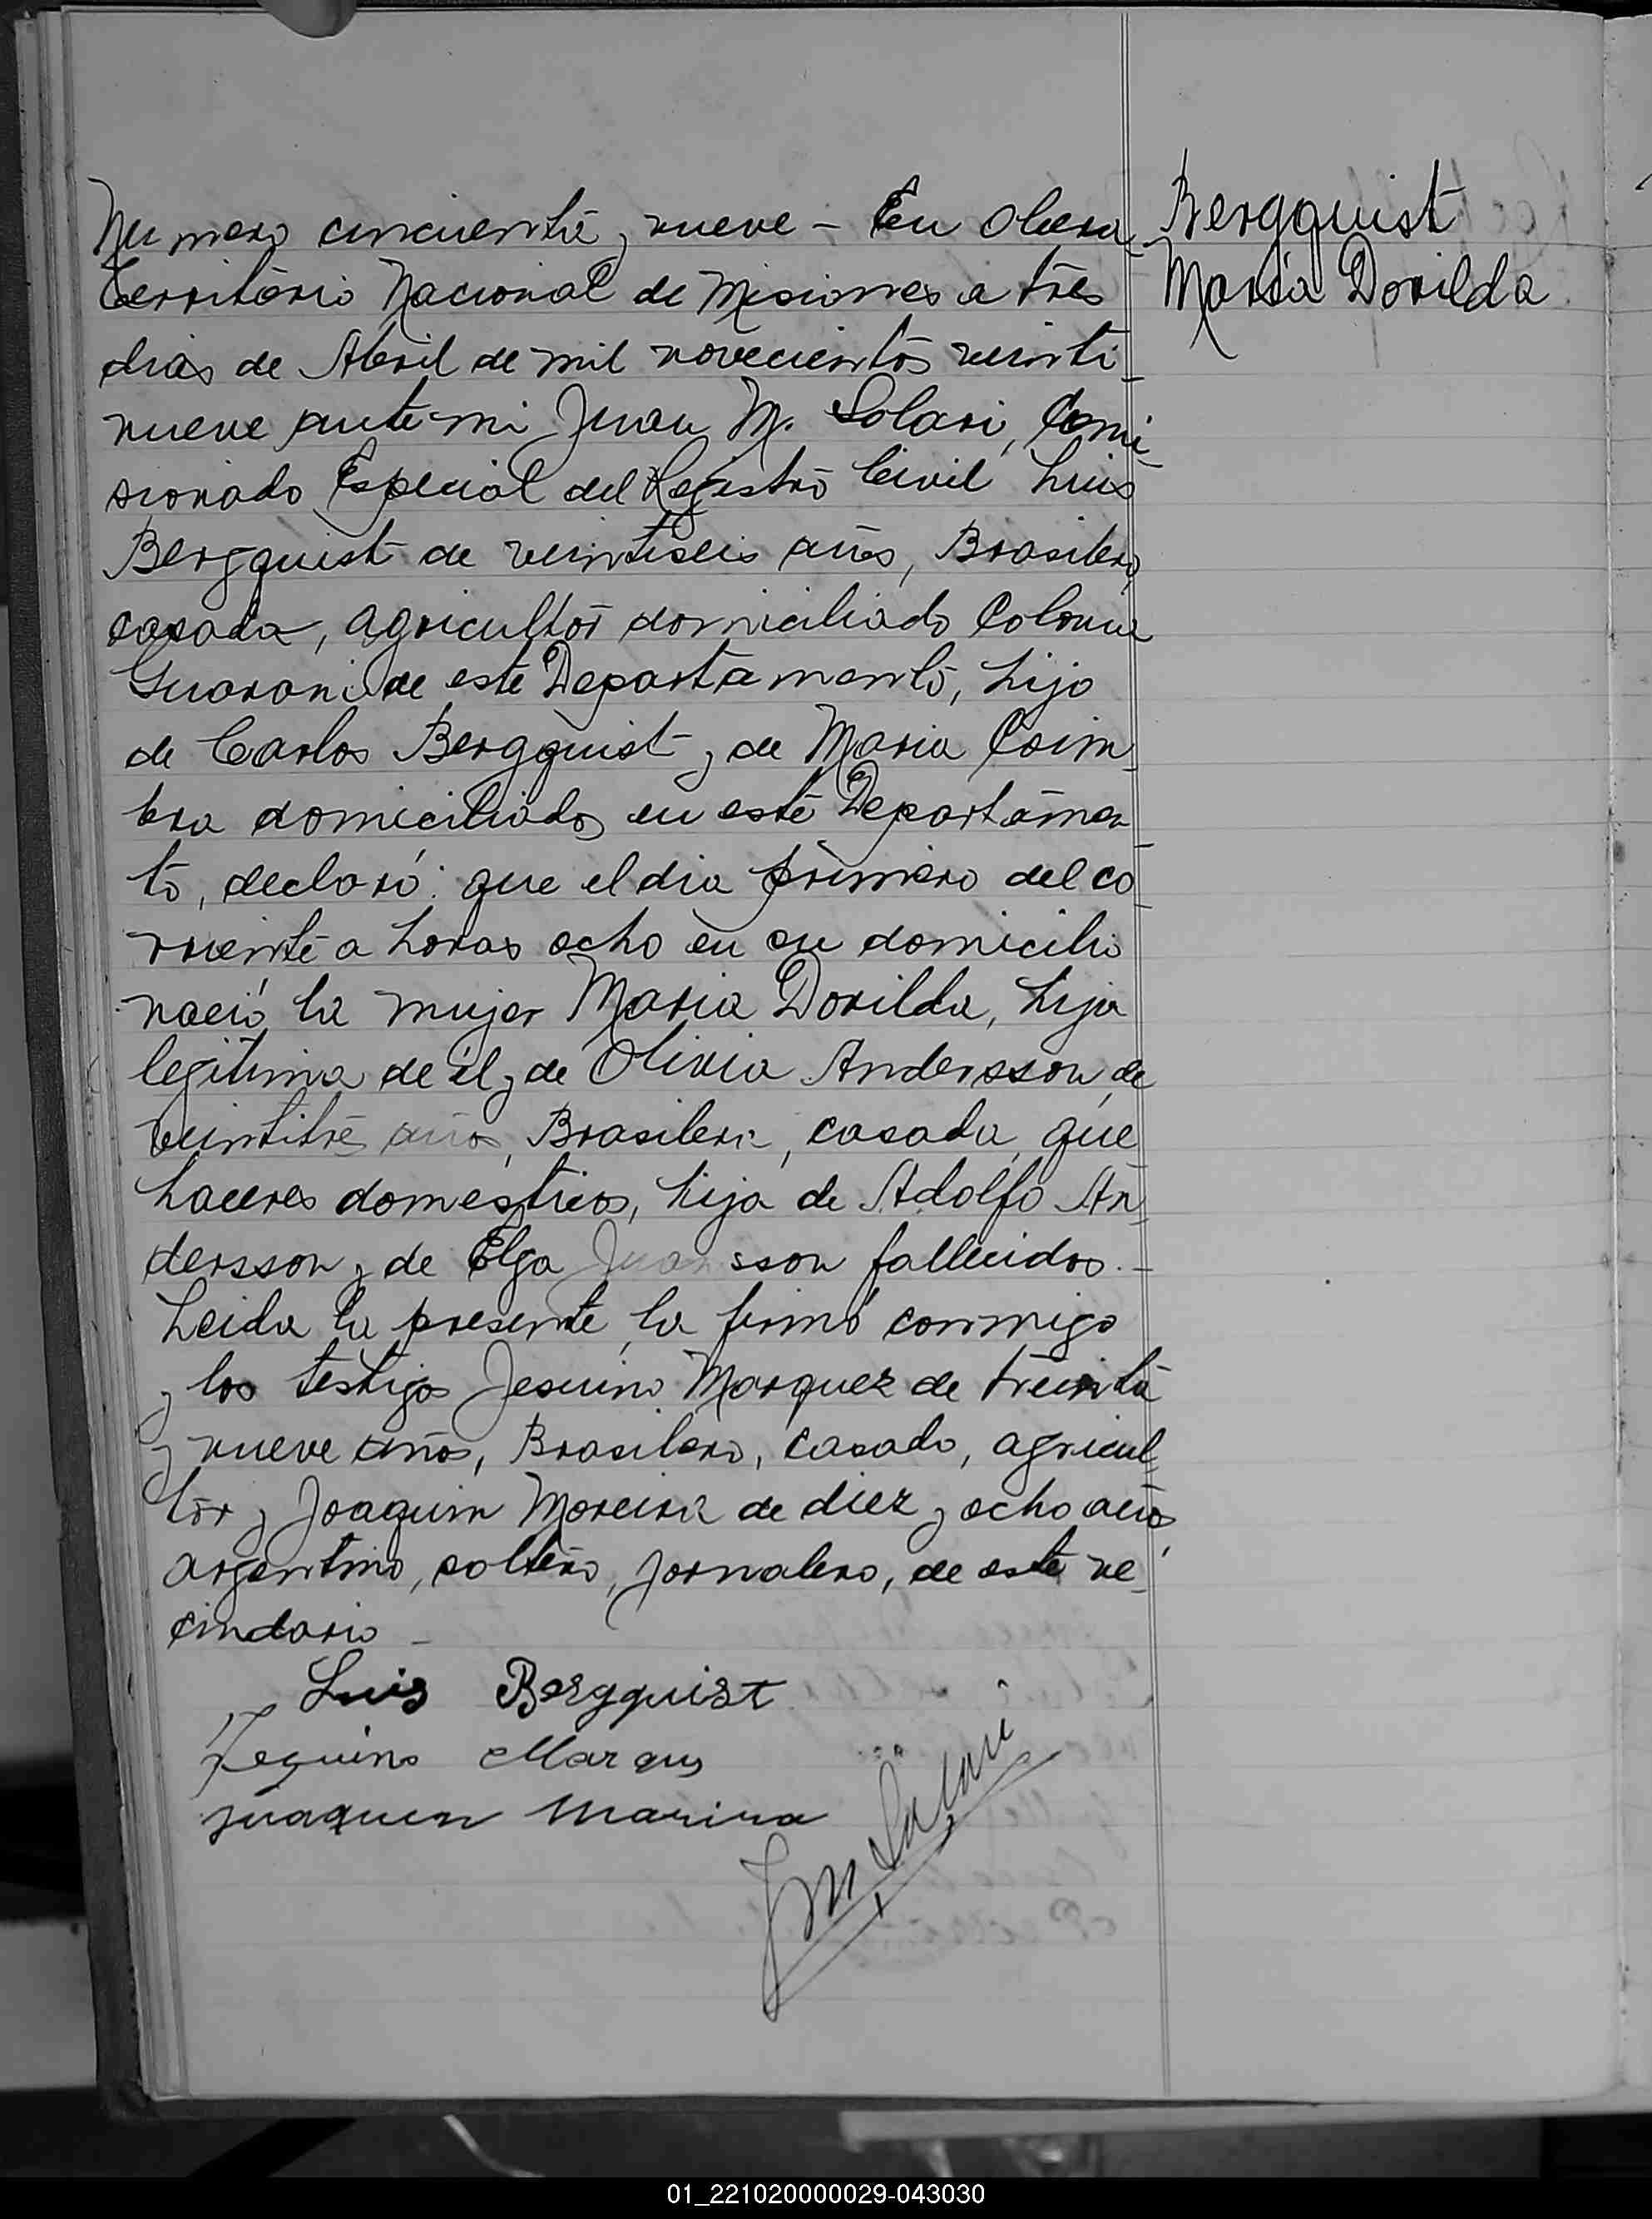 Numero cincuenta y nueve - En Obera
Bergquist
Territorio Nacional de Misiones a tres
Maria Dorilda
dias de Abril de mil novecientos veinti
nueve ante mi Juan M. Solari, Comi
sionado Especial del Registro Civil Luis
Bergquist de veintiseis años, Brasilero,
casada, agricultor domiciliado Colonia
Guarani de este Departamento, hijo
de Carlos Bergquist y de Maria Coim
bra domiciliados en este Departamen
to, declaró: que el dia primero del co
rriente a horas ocho en su domicilio
nació la mujer Maria Dorilda, hija
legitima de él y de Olivia Andersson, de
veintitre años, Brasilera, casada, que
haceres domesticos, hija de Adolfo An
dersson y de Elga Juansson fallecidos.-
Leida la presente, la firmó conmigo
y los testigos Jesuino Marquez de treinta
y nueve años, Brasilero, casado, agricul
tor y Joaquin Moreira de diez y ocho años,
argentino, soltero, jornalero, de este ve
cindario -
Luis Bergquist
Jeguino Marqus
Juaquin Marira
JM Solari
01_221020000029-043030